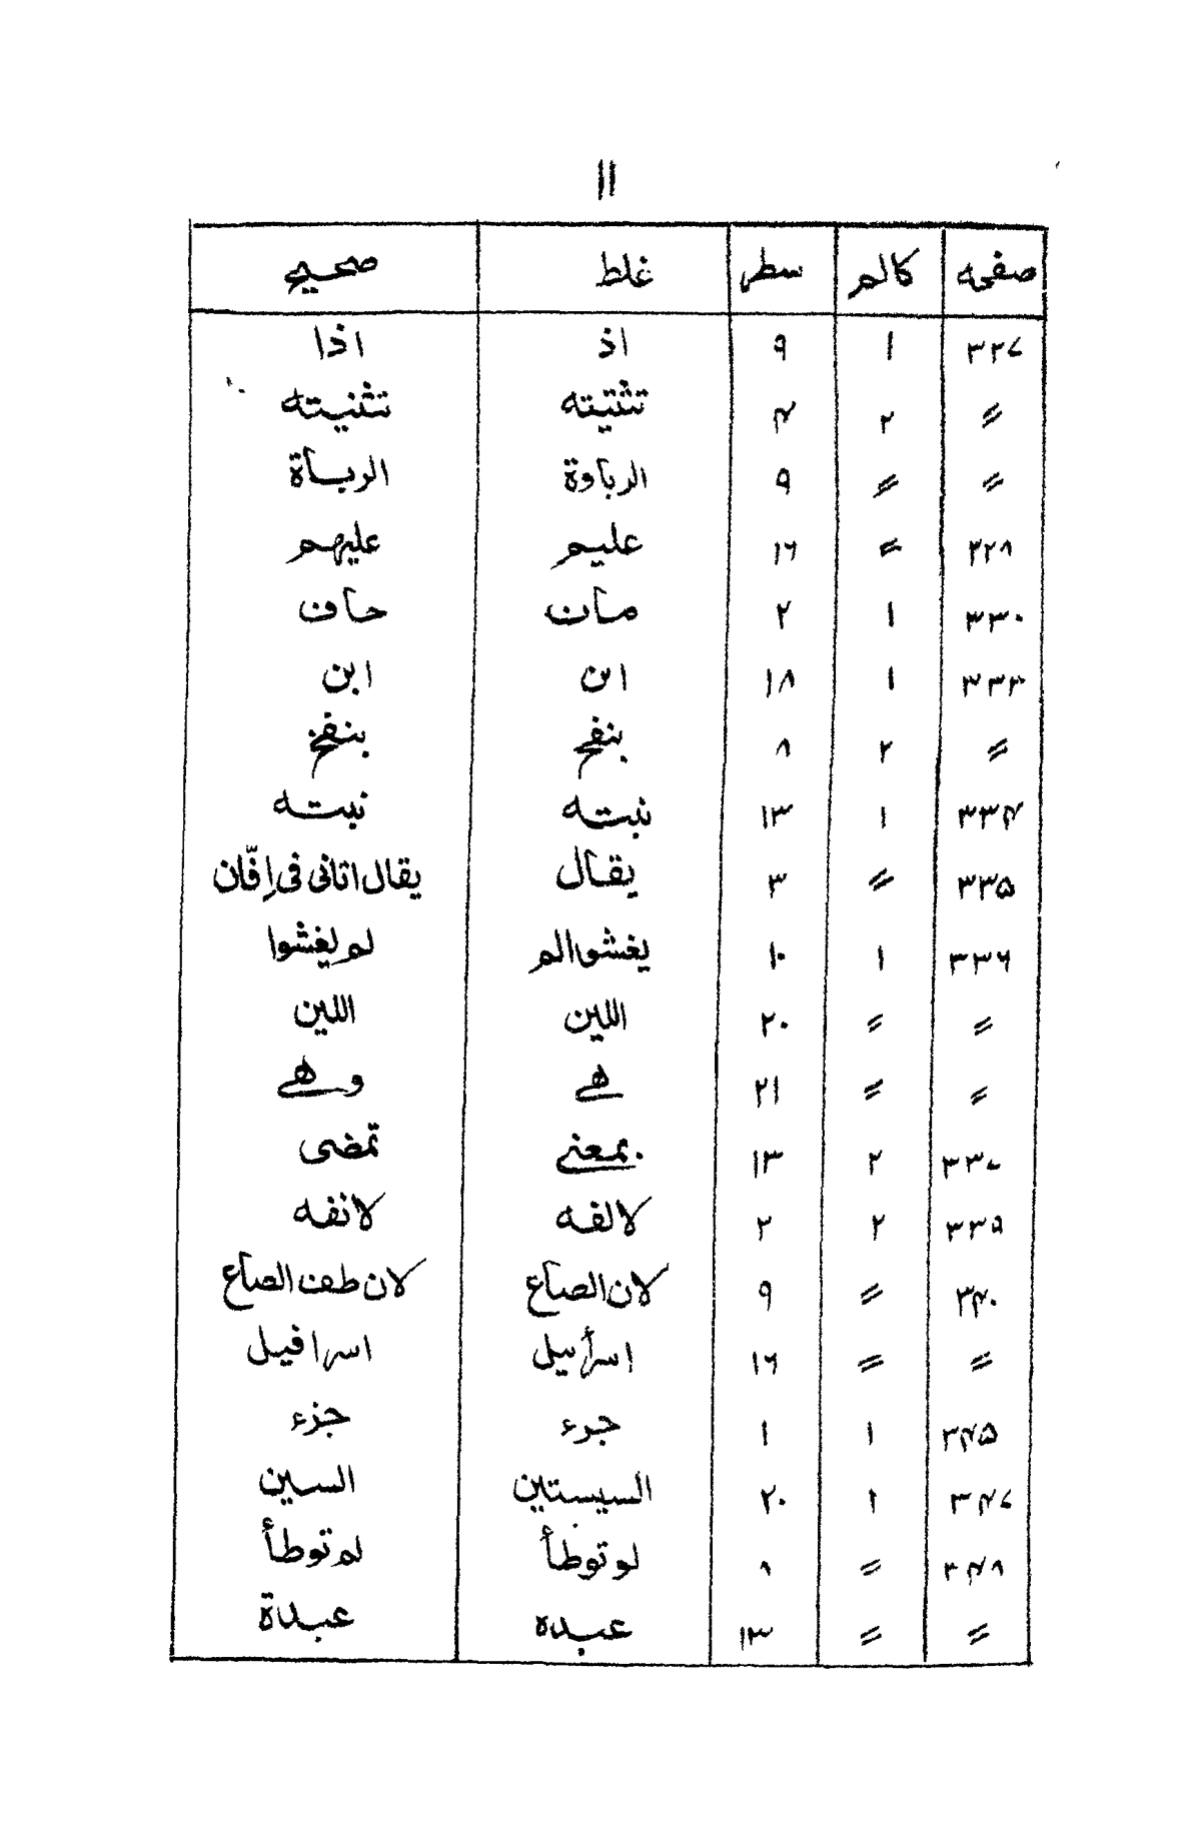 ۱۱
صفحہ کالم سطر غلط صحیح
۳۲۷ ۱ ۹ اذ اذا
〃 ۲ ۴ تثتیته تثنیته
〃 〃 ۹ الرباوة الربأة
۳۲۸ 〃 ۱۶ علیم علیهم
۳۳۰ ۱ ۲ مأن حأن
۳۳۳ ۱ ۱۸ ان ابن
〃 ۲ ۸ بنفح بنفخ
۳۳۴ ۱ ۱۳ نبته نبته
۳۳۵ 〃 ۳ یقال یقال اتانی فی اِفّان
۳۳۶ ۱ ۱۰ یغشوا الم لم یغشوا
〃 〃 ۲۰ اللین اللین
〃 〃 ۲۱ هی وهی
۳۳۷ ۲ ۱۳ بمعنی تمضی
۳۳۹ ۲ ۲ لالفه لانفه
۳۴۰ 〃 ۹ لان الصاع لان طف الصاع
〃 〃 ۱۶ اسرأییل اسرافیل
۳۴۵ ۱ ۱ جرء جزء
۳۴۷ ۱ ۲۰ السیستین السین
۳۴۸ 〃 ۸ لو توطأ لم توطأ
〃 〃 ۱۳ عبده عبدة